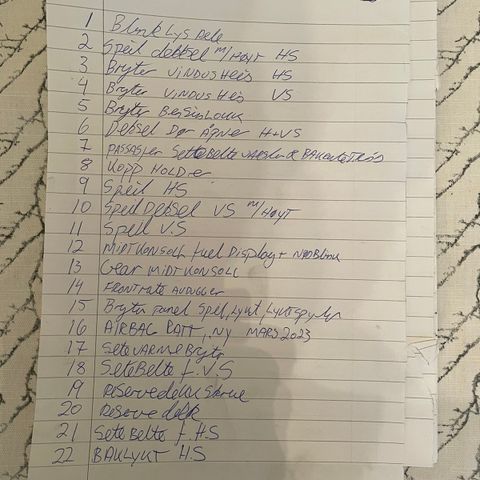 1 Blink Lys Dele
2 Speil deksel m/Høyt HS
3 Bryter VINDUSHeis HS
4 Bryter VINDUSHeis VS
5 Bryter BensinLokk
6 Deksel Dør Åpner H+VS
7 PASSASJer SetteBelte VARSLer & BAKsete
8 KOPP HOLDer
9 Speil HS
10 Speil Deksel VS m/Høyt
11 Speil V.S
12 MIDTKONSOLL Fuel Display + NødBlink
13 Gear MIDTKONSOLL
14 FRONTRUTE
15 Bryter panel Speil, Lykt, Lyktspyler
16 AIRBAG RATT, NY MARS 2023
17 SeteVARMe Bryter
18 SeteBelte F.V.S
19 Reservedekk Skrue
20 Reservedekk
21 SeteBelte F.H.S
22 BAKLYKT H.S